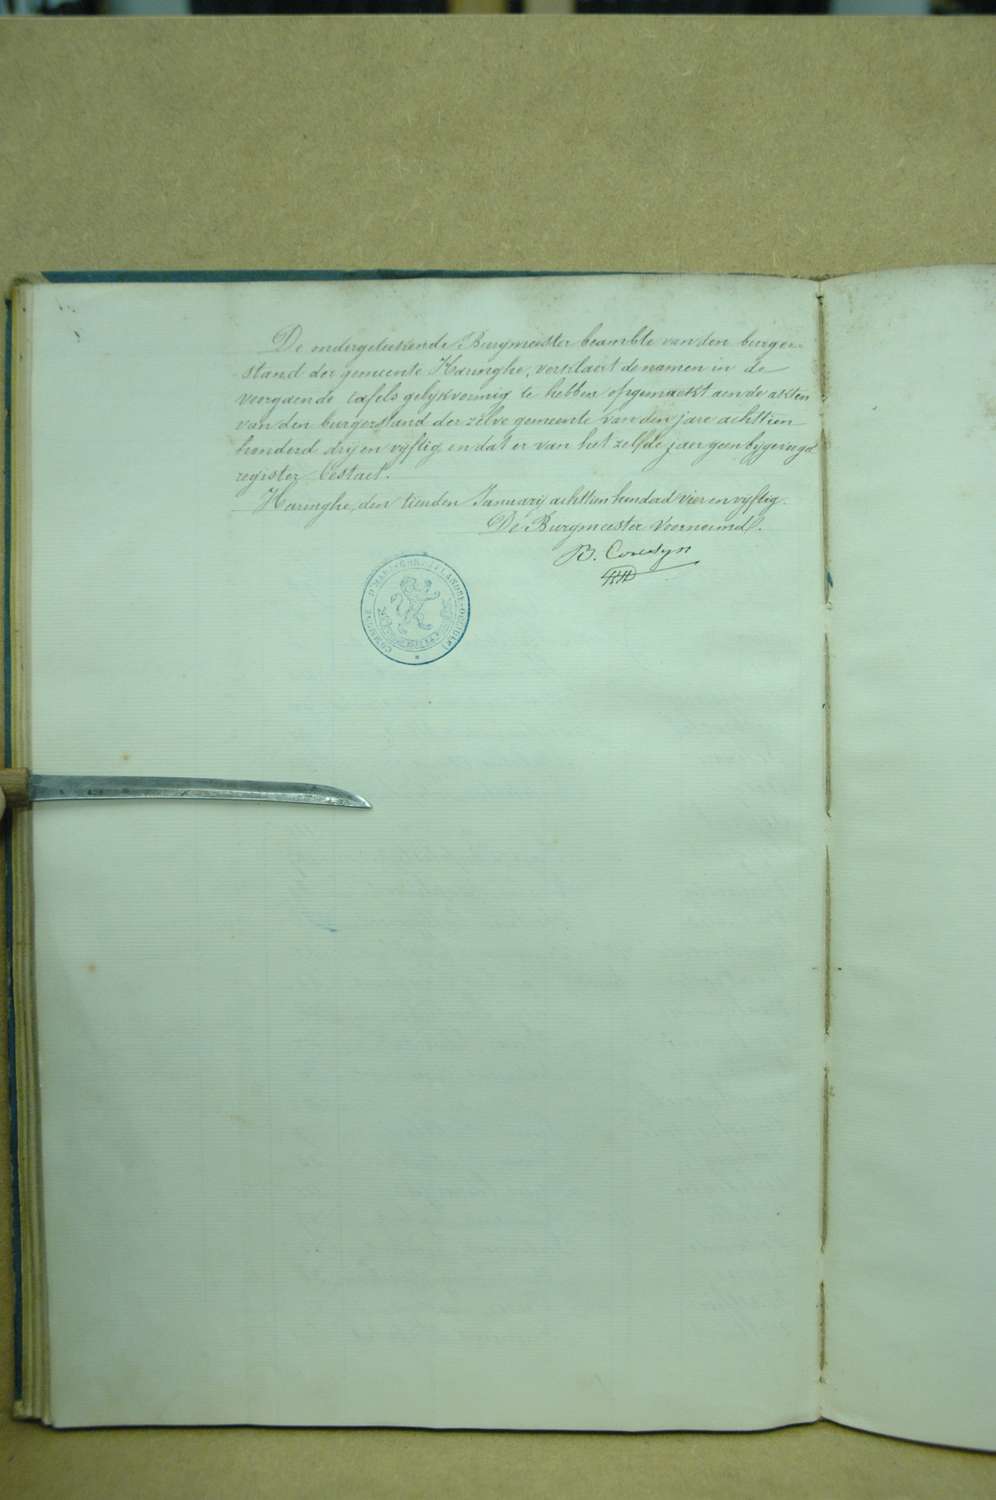 De ondergeteekende Burgmeester beambte van den burger-
stand der gemeente Haringhe, verklaert de namen in de
voorgaende tafels gelykvormig te hebben opgemaekt aen de akten
van den burgerstand der zelve gemeente van den jare achttien
honderd dry en vyftig en dat er van het zelfde jaer geen bygevoegd
register bestaet.
Haringhe, den tienden January achttien honderd vier en vyftig.
De Burgmeester Voornoemd.
B.
COMMUNE D'HARINGHE (FLANDRE-OCCIDLE)